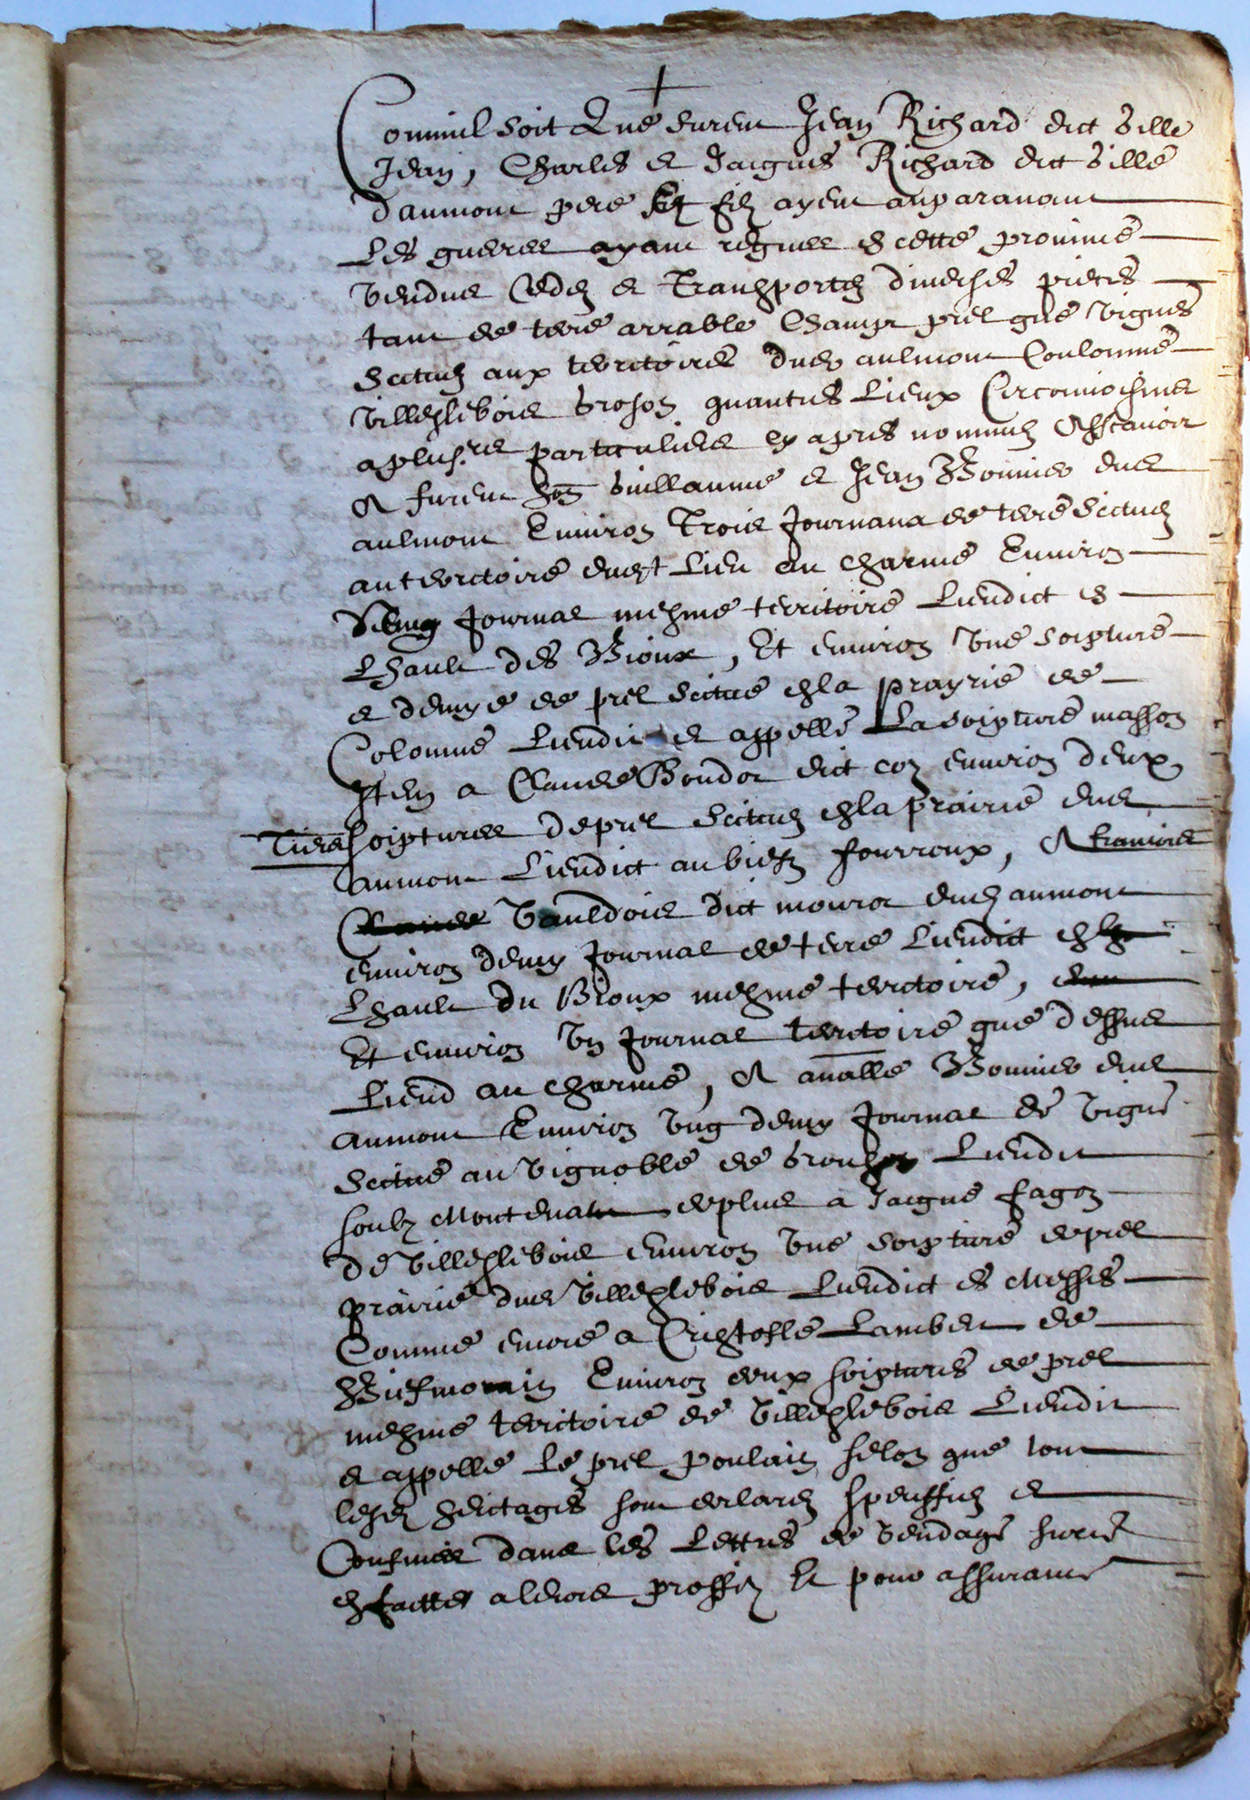 Commil soit Que furent Jean Richard dict Gille
Jean, Charles et Jaiques Richard dict Gille
daumont pere et filz ayent auparavant
Les guerres ayant regnees en cette province
vendue cedez et transportez diverses pieces
tant de terre arrable champs prel que vignes
scituez aux territoires dud aulmont Coulonne
villerslebois brohon quautres Lieux Circonvoisins
a plusrs particuliers cy apres nommez Asscavoir
A furent Guillaume et Jean Bonnier dud
aulmont Environ Trois Journaux de terre scituez
au territoire dud Lieu au charme Environ
demy Journal mesme territoire Lieudict es
Lhault des Bioux, Et environ une soipture
et demye de prel scitue en la prayrie de
Colonne Lieudit et appellé La soipture masson
Item a Claude Boudot dict environ deux
soiptures de prel scituez en la prairie dud
aumont Lieudict au bief fourroux, A francois
Vauldois dict mourot dud aumont
environ demy Journal de terre Lieudict en
Lhault du Bioux mesme territoire,
Et environ un Journal territoire que dessus
Lieud au charme, A anathoille Bonnier dud
aumont Environ ung demy Journal de vigne
scitue au vignoble de Lieudit
soubz deplus a Jaique fagon
de villerslebois environ une soipture de prel
prairie dud villerslebois Lieudict es Messes
Comme encore a Cristofle Lambert de
Biefmorin Environ deux soiptures de prel
mesme territoire de villerslebois Lieudit
et appelle Le prel poulain selon que tout
lesd heritages sont declarez speciffiez et
Confines dans les Lettres de vendage sur ce
en faittes a leurs proffis Et pour assurance